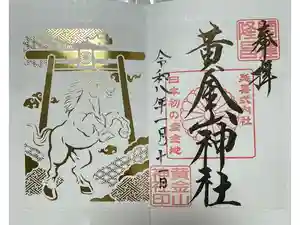 奉拝
延喜式内社
黄金山神社
日本初の産金地
黄金山神社印
令和八年一月十一日